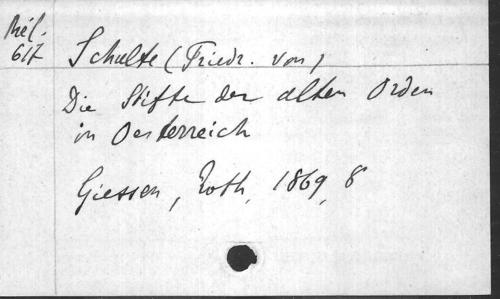 Mél.
617
Schulte (Friedr. von)
Die Stifte der alten Orden
in Oesterreich
Giessen, Roth, 1869, 8